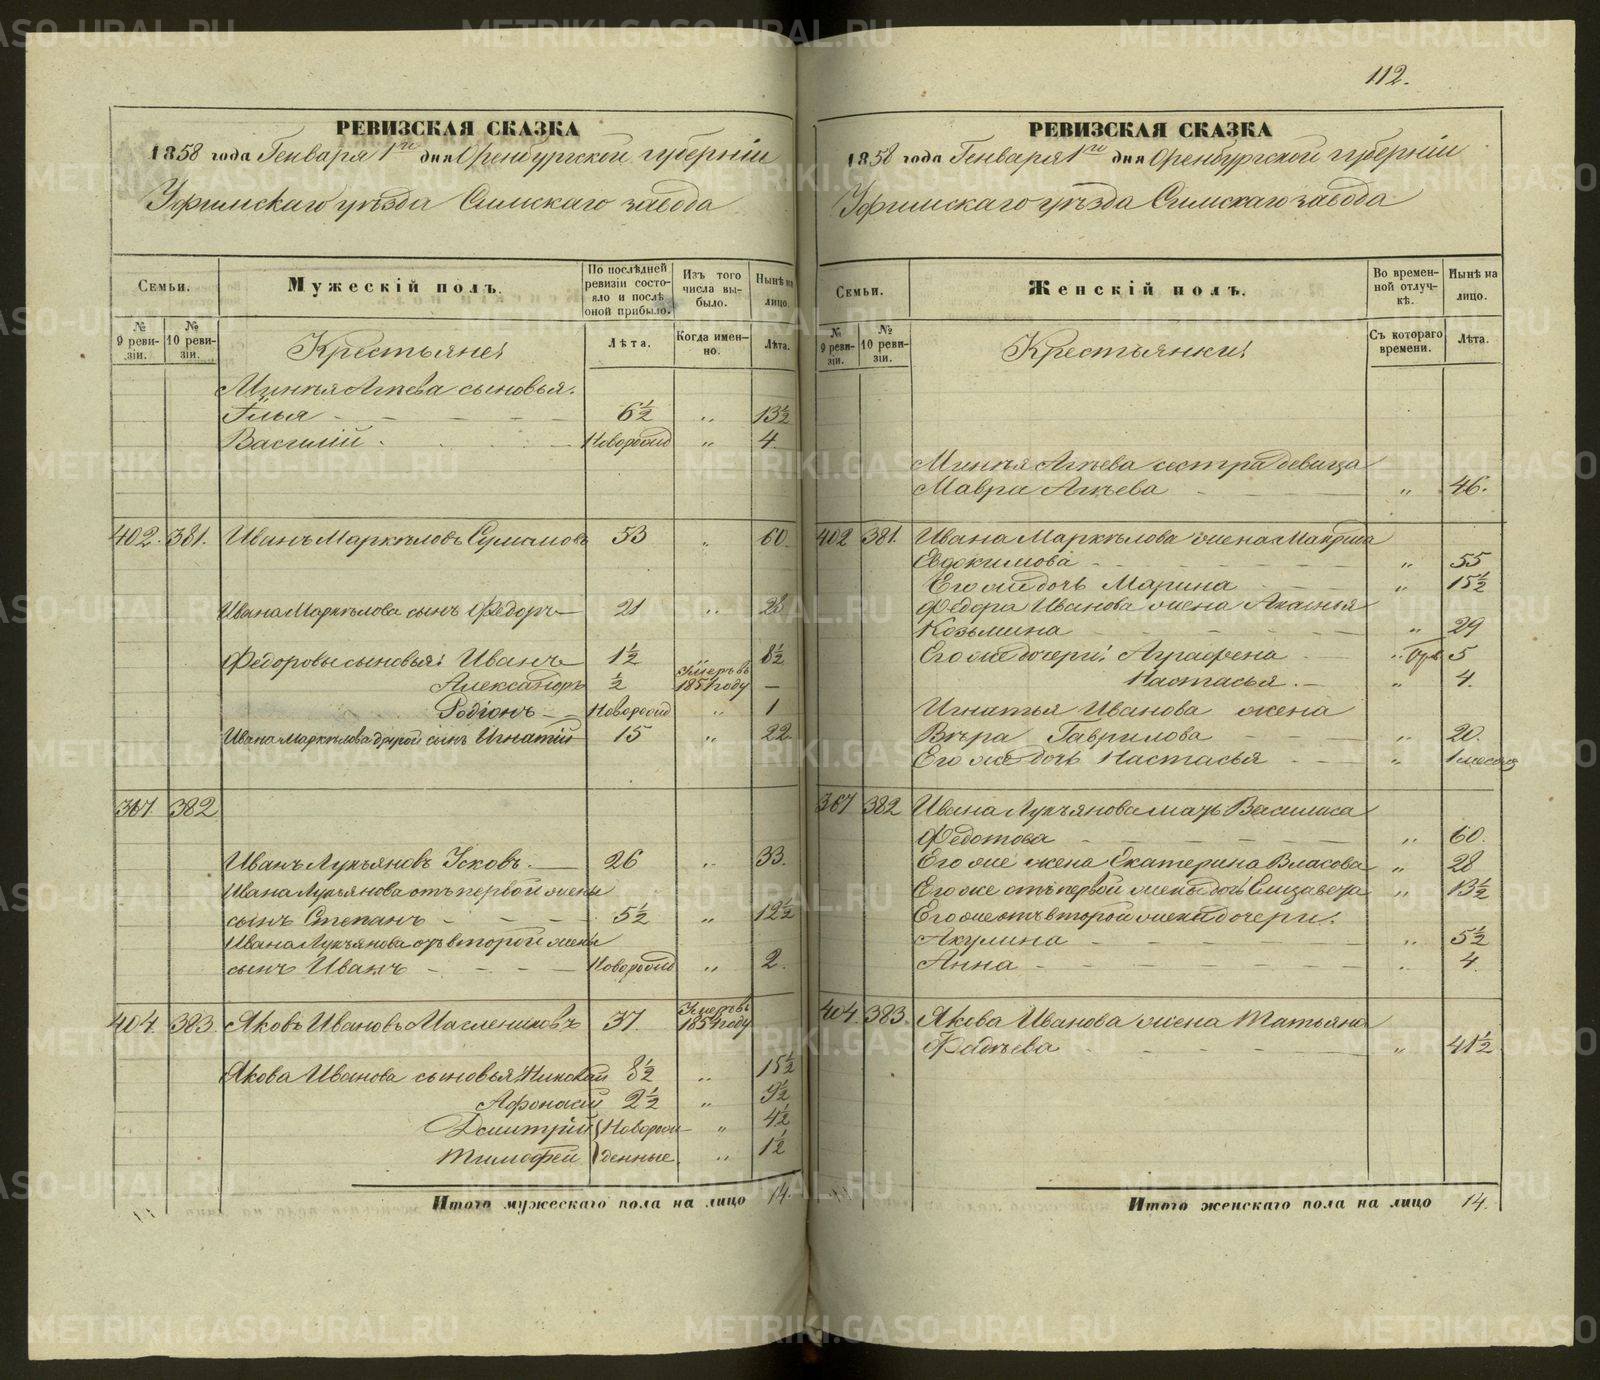 112.
РЕВИЗСКАЯ СКАЗКА
1858 года Генваря 1го дня Оренбургской губерніи
Уфимскаго уѣзда Симскаго завода
Семьи.
Мужескій полъ.
По послѣдней ревизіи состояло и послѣ оной прибыло.
Изъ того числа выбыло.
Нынѣ на лицо.
№ 9 ревизіи.
№ 10 ревизіи.
Крестьяне:
Лѣта.
Когда именно.
Лѣта.
Минѣя Агѣева сыновья.
Илья - - - 6½ „ 13½
Василій Новорожд „ 4
402. 381. Иванъ Маркѣловъ 53 „ 60.
Ивана Маркѣлова сынъ Ѳедоръ 21 „ 28
Ѳедоровы сыновья: Иванъ 1½ 8½
Александръ ½ Умеръ въ 185 году —
Родіонъ Новорожд „ 1
Ивана Маркѣлова другой сынъ Игнатій 15 „ 22
367 382
Иванъ Лукьяновъ Усковъ. 26 „ 33.
Ивана Лукьянова отъ первой жены
сынъ Степанъ - - - - 5½ „ 12½
Ивана Лукьянова отъ второй жены
сынъ Иванъ - - - - Новорожд „ 2.
404. 383. Яковъ Ивановъ Маслениковъ 37. Умеръ въ 185 году
Якова Иванова сыновья: Николай 8½ „ 15½
Афонасій 2½ „ 9½
Дмитрій } Новорож- „ 4½
Тимофей } денные „ 1½
Итого мужескаго пола на лицо 14.
РЕВИЗСКАЯ СКАЗКА
1858 года Генваря 1го дня Оренбургской губерніи
Уфимскаго уѣзда Симскаго завода
Семьи.
Женскій полъ.
Во временной отлучкѣ.
Нынѣ на лицо.
№ 9 ревизіи.
№ 10 ревизіи.
Крестьянки:
Съ котораго времени.
Лѣта.
Минѣя Агѣева сестра девица
Мавра Агѣева „ 46.
402 381. Ивана Маркѣлова жена
Евдокимова „ 55
Его же дочь Марина „ 15½
Ѳедора Иванова жена
Козьмина „ 29
Его же дочери: Аграфена „ 5
Настасья. „ 4.
Игнатья Иванова жена
Вѣра Гаврилова „ 20.
Его же дочь Настасья „ 1 месяц
367 382 Ивана Лукьянова мать Василиса
Ѳедотова „ 60.
Его же жена Екатерина Власова „ 28
Его же отъ первой жены дочь Елизавета „ 13½
Его же отъ второй жены дочери:
Акулина „ 5½
Анна „ 4
404. 383. Якова Иванова жена Татьяна
Фадѣева „ 41½
Итого женскаго пола на лицо 14.
METRIKI.GASO-URAL.RU